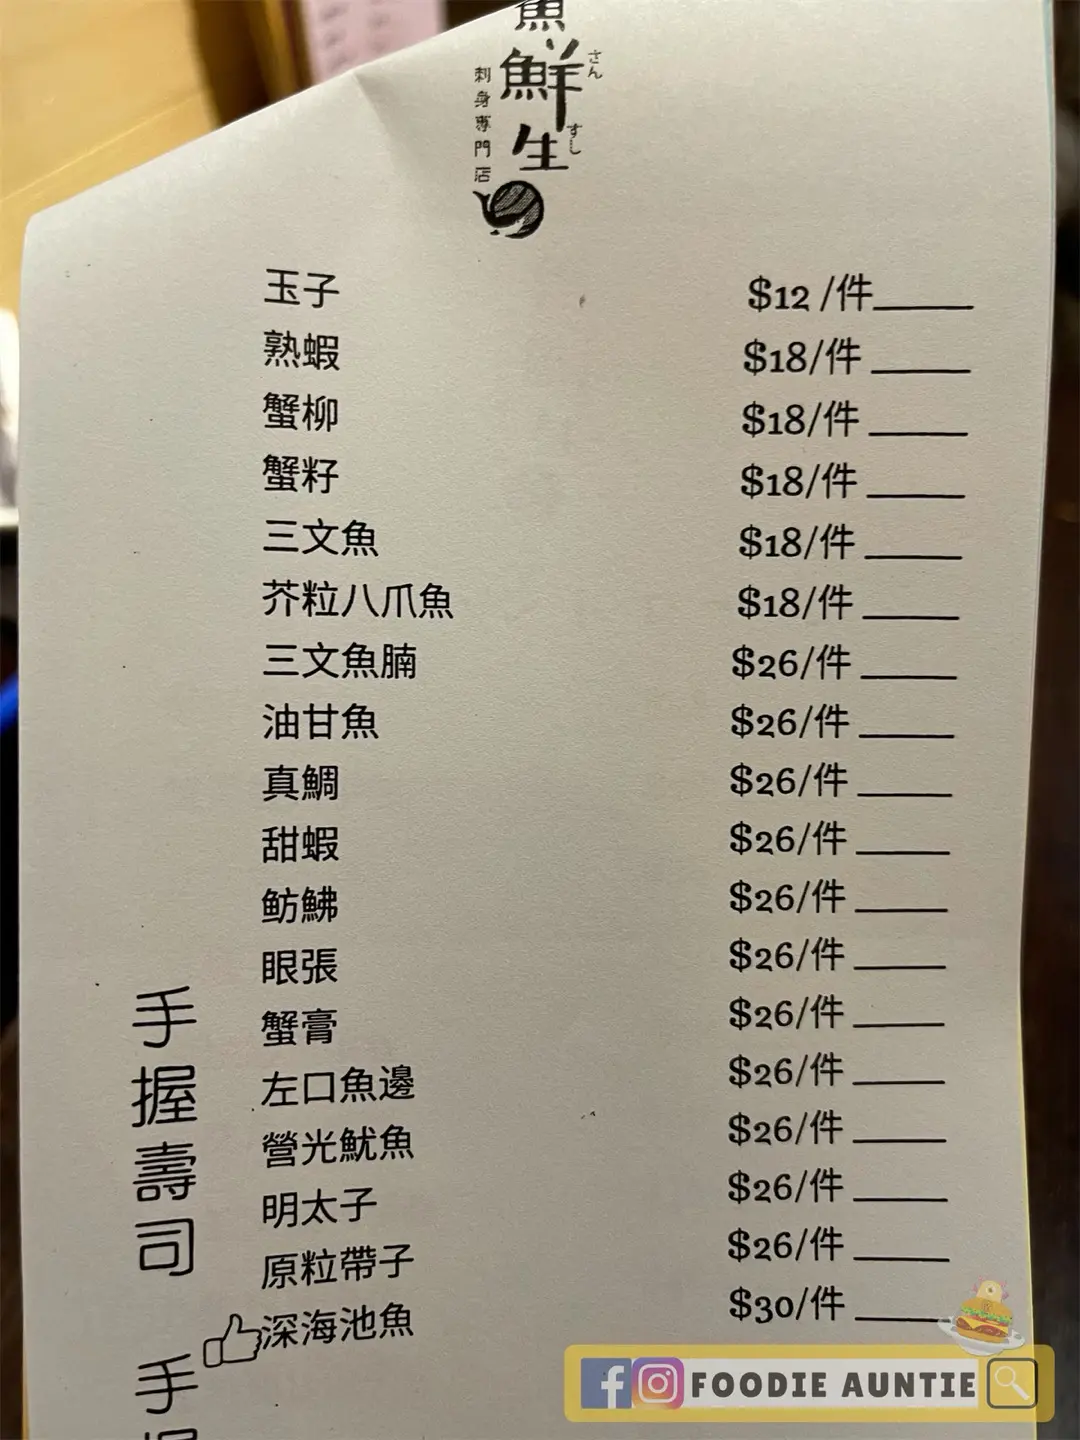 魚鮮生
さん
すし
刺身專門店
玉子 $12 /件
熟蝦 $18/件
蟹柳 $18/件
蟹籽 $18/件
三文魚 $18/件
芥粒八爪魚 $18/件
三文魚腩 $26/件
油甘魚 $26/件
真鯛 $26/件
甜蝦 $26/件
魴鮄 $26/件
眼張 $26/件
蟹膏 $26/件
左口魚邊 $26/件
螢光魷魚 $26/件
明太子 $26/件
原粒帶子 $26/件
深海池魚 $30/件
手握壽司
手
FOODIE AUNTIE